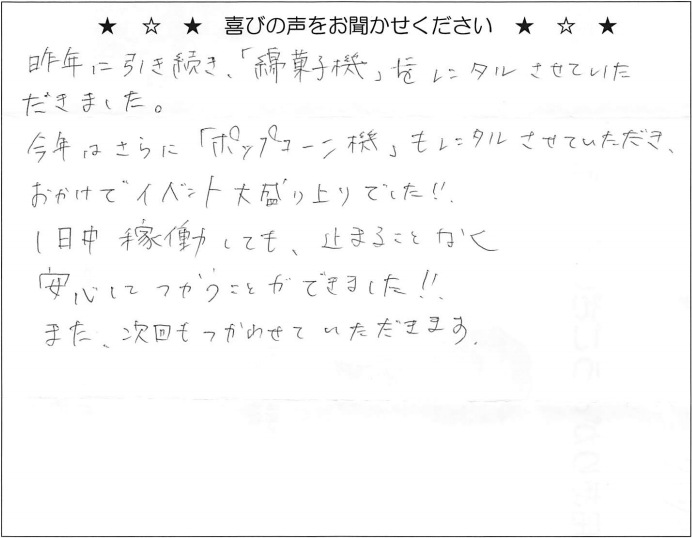 ★ ☆ ★ 喜びの声をお聞かせください ★ ☆ ★
昨年に引き続き、「綿菓子機」をレンタルさせていた
だきました。
今年はさらに「ポップコーン機」もレンタルさせていただき、
おかげでイベント大盛り上りでした!!
1日中稼働しても、止まることなく
安心してつかうことができました!!
また、次回もつかわせていただきます。